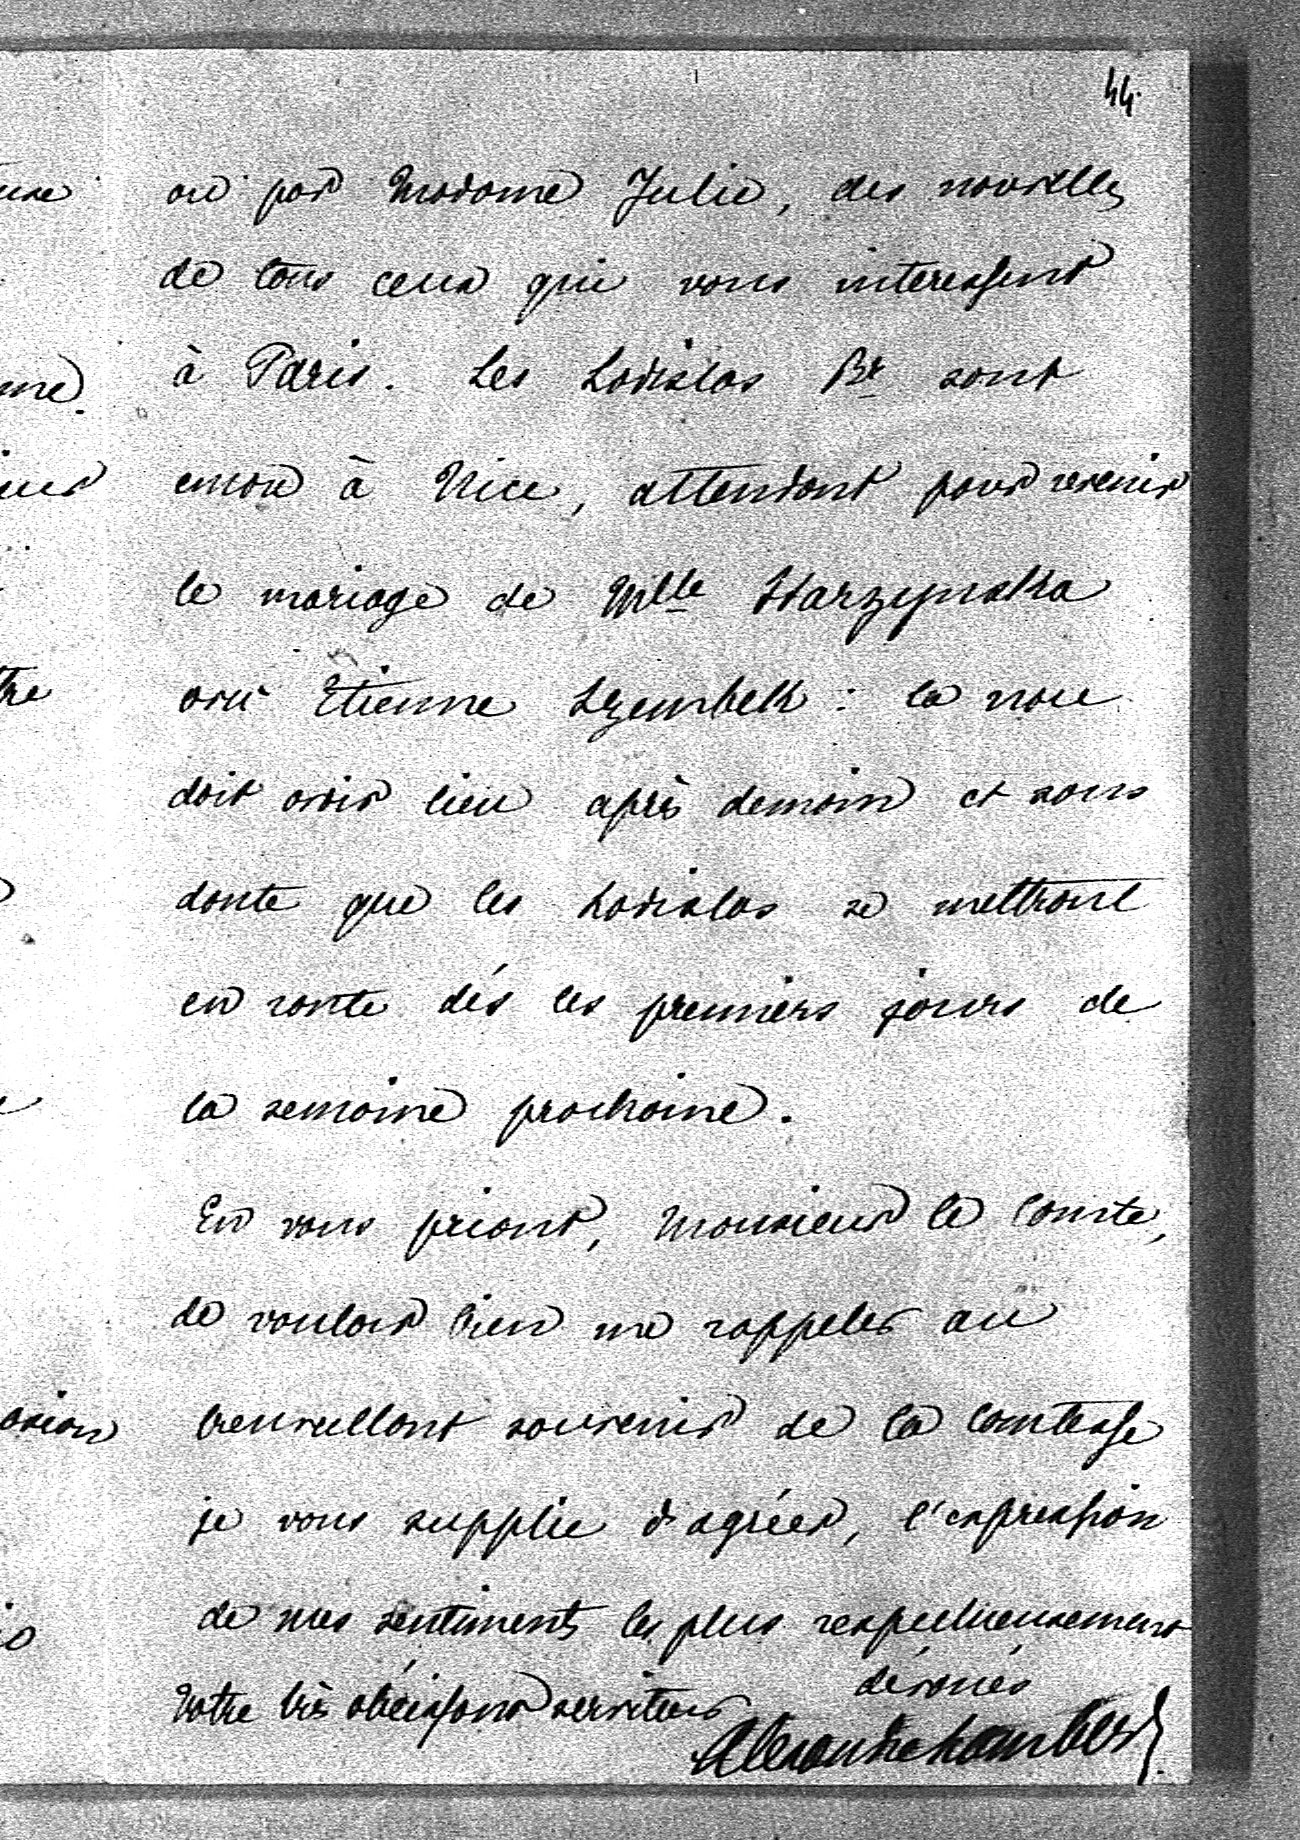 44.
ou par Madame Julie, des nouvelles
de tous ceux qui vous interessent
à Paris. Les Ladislas Br sont
encore à Nice, attendant pour revenir
le mariage de Mlle Skarzynska
avec Etienne Szembek : la noce
doit avoir lieu après demain et sans
doute que les Ladislas se mettront
en route dés les premiers jours de
la semaine prochaine.
En vous priant, Monsieur le Comte,
de vouloir bien me rappeler au
bienveillant souvenir de la Comtesse
je vous supplie d'agréer, l'expression
de mes sentiments les plus respectueusement
dévoués
Votre très obéissant serviteur
Alexandre